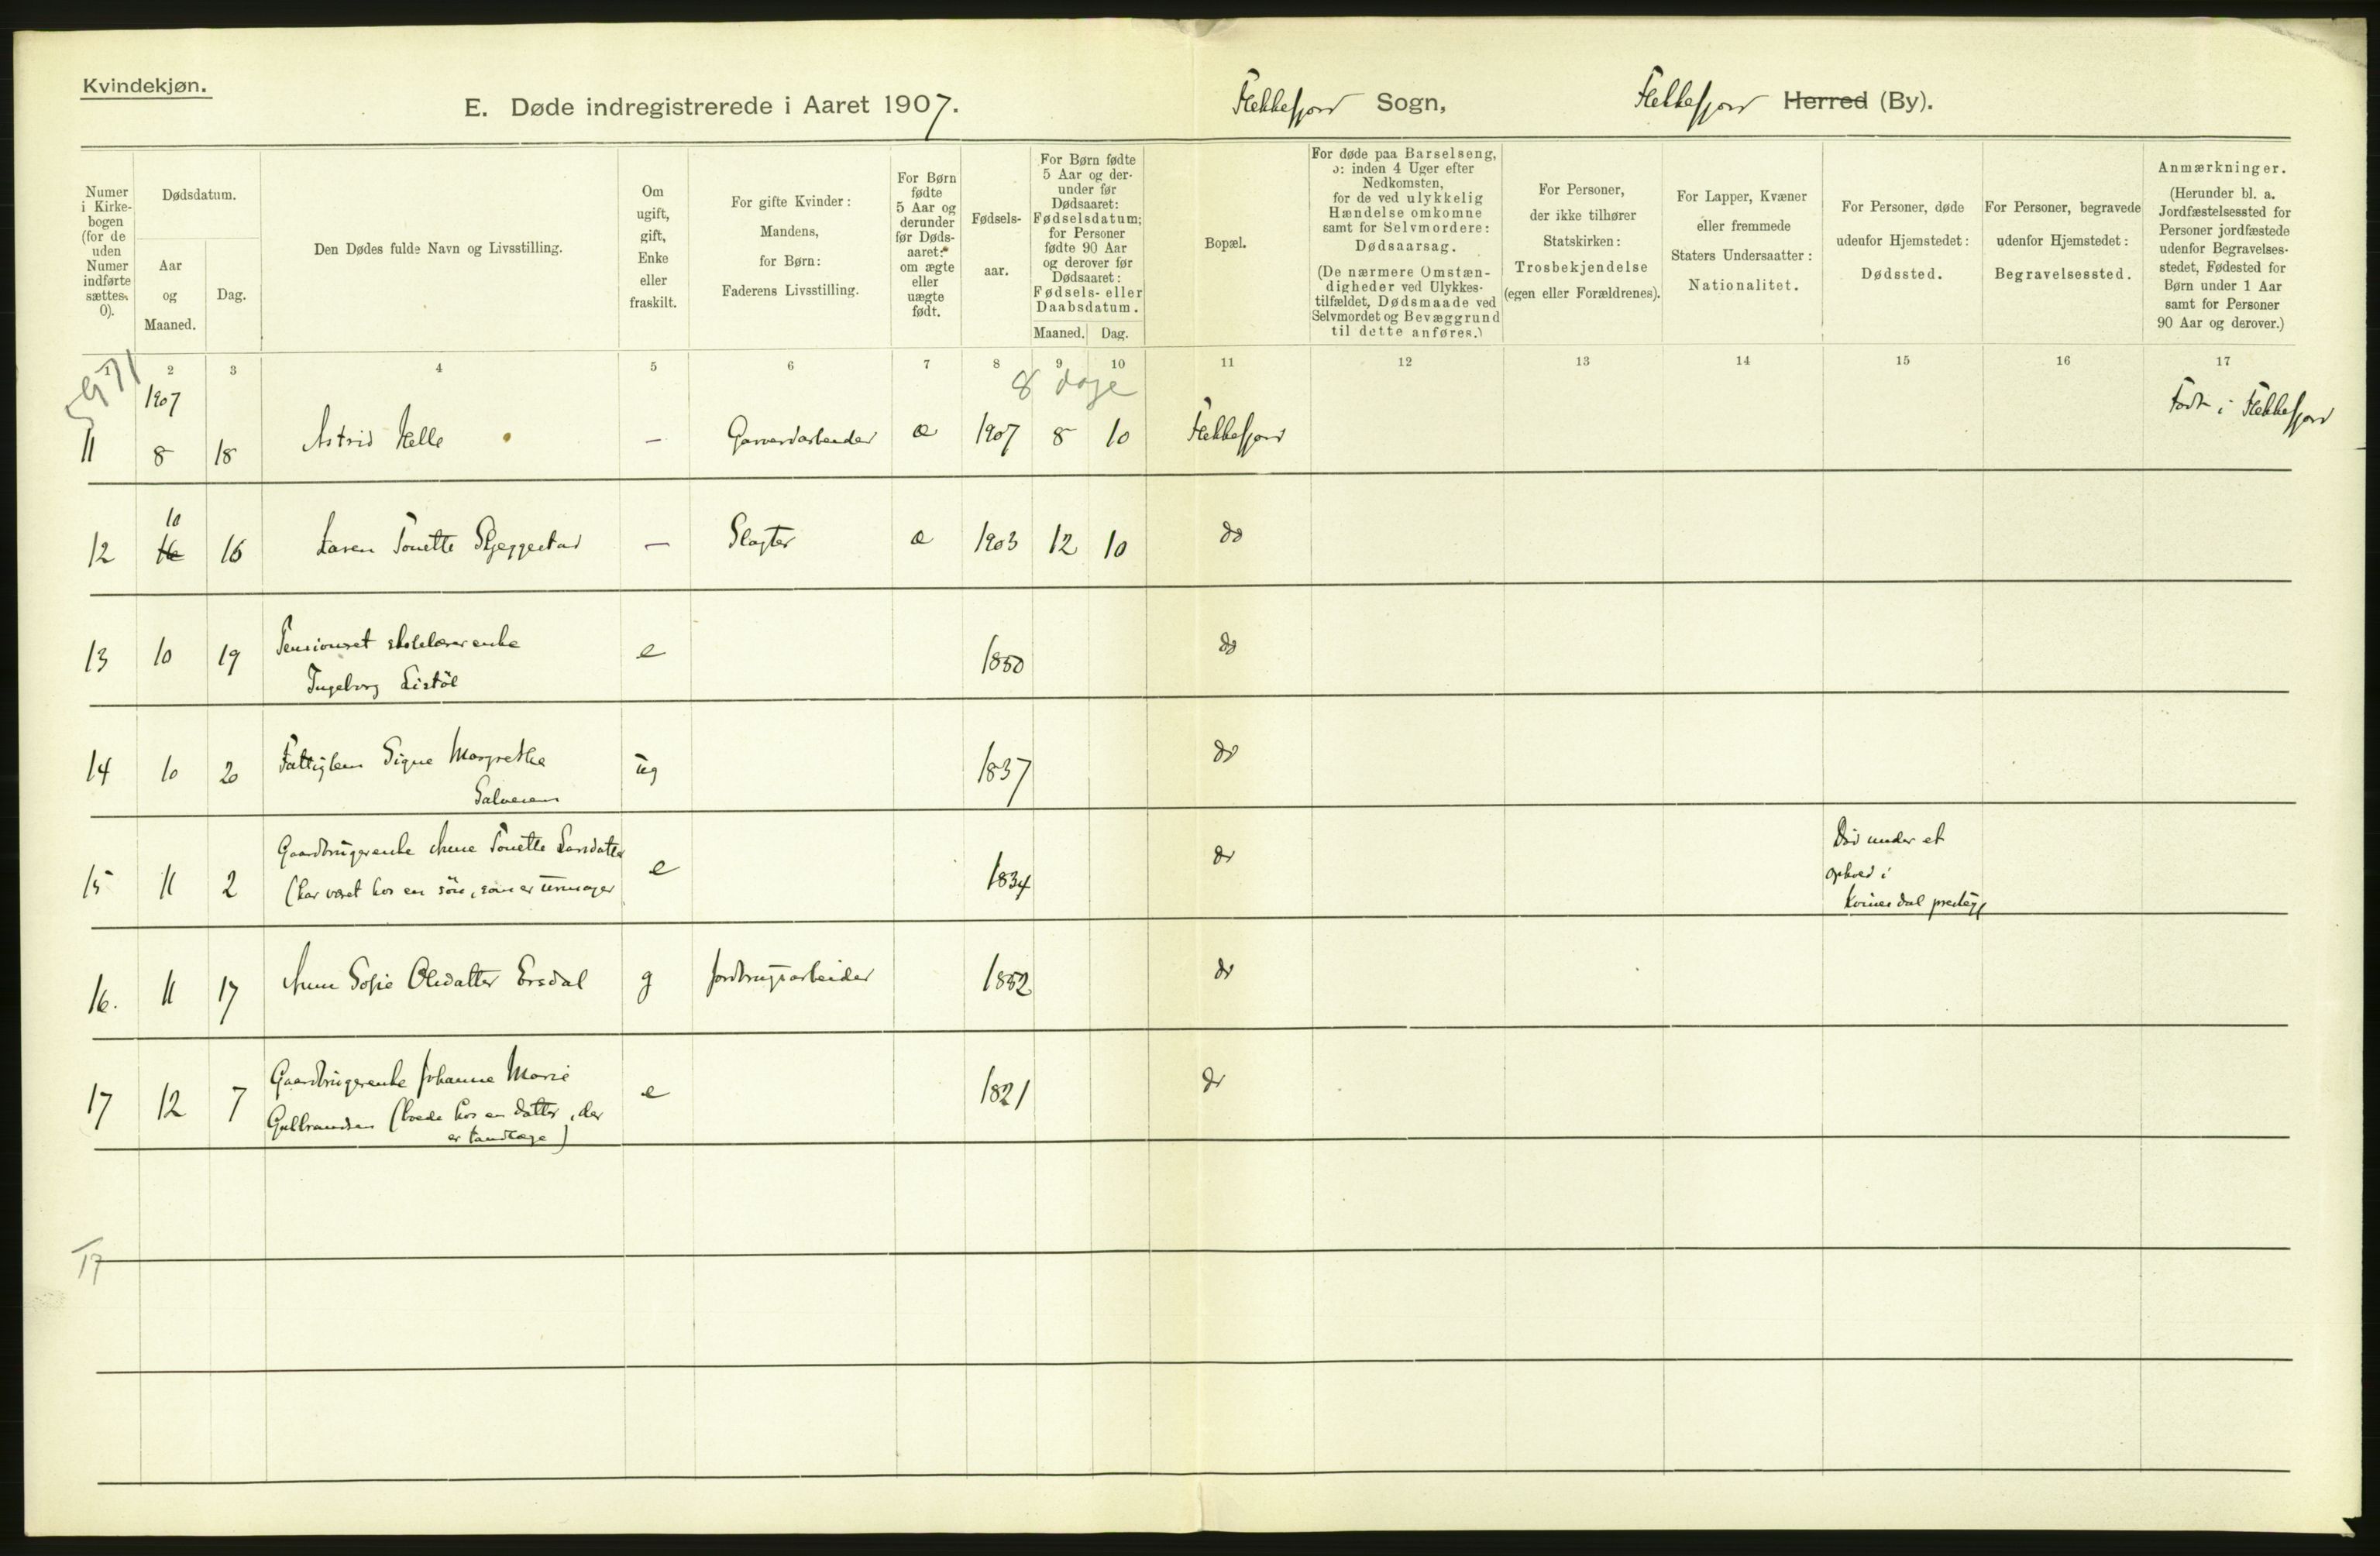 Kvindekjøn.
E. Døde indregistrerede i Aaret 1907.
Flekkefjord Sogn,
Flekkefjord Herred (By).
Numer
i Kirke-
bogen
(for de
uden
Numer
indførte
sættes
0).
Dødsdatum.
Aar
og
Maaned.
Dag.
Den Dødes fulde Navn og Livsstilling.
Om
ugift,
gift,
Enke
eller
fraskilt.
For gifte Kvinder:
Mandens,
for Børn:
Faderens Livsstilling.
For Børn
fødte
5 Aar og
derunder
før Døds-
aaret:
om ægte
eller
uægte
født.
Fødsels-
aar.
For Børn fødte
5 Aar og der-
under før
Dødsaaret:
Fødselsdatum;
for Personer
fødte 90 Aar
og derover før
Dødsaaret:
Fødsels- eller
Daabsdatum.
Maaned. Dag.
Bopæl.
For døde paa Barselseng,
ɔ: inden 4 Uger efter
Nedkomsten,
for de ved ulykkelig
Hændelse omkomne
samt for Selvmordere:
Dødsaarsag.
(De nærmere Omstæn-
digheder ved Ulykkes-
tilfældet, Dødsmaade ved
Selvmordet og Bevæggrund
til dette anføres.)
For Personer,
der ikke tilhører
Statskirken:
Trosbekjendelse
(egen eller Forældrenes).
For Lapper, Kvæner
eller fremmede
Staters Undersaatter:
Nationalitet.
For Personer, døde
udenfor Hjemstedet:
Dødssted.
For Personer, begravede
udenfor Hjemstedet:
Begravelsessted.
Anmærkninger.
(Herunder bl. a.
Jordfæstelsessted for
Personer jordfæstede
udenfor Begravelses-
stedet, Fødested for
Børn under 1 Aar
samt for Personer
90 Aar og derover.)
1 2 3 4 5 6 7 8 9 10 11 12 13 14 15 16 17
1907
8 dage
11 8 18 Astrid Helle — Garverarbeider æ 1907 8 10 Flekkefjord Født i Flekkefjord
10
12 16 16 Laren Tonette Skjeggestad — Slagter æ 1903 12 10 do
13 10 19 Pensioneret skolelærerenke e 1850 do
Ingeborg Listøl
14 10 20 Fattiglem Signe Margrethe ug 1837 do
Salvesen
15 11 2 Gaardbrugerenke Anne Tonette Larsdatter e 1834 do Død under et
(har været hos en søn, som er urmager ophold i
Kvinesdal prestegj
16. 11 17 Anne Sofie Olsdatter Ersdal g jordbrugsarbeider 1852 do
17 12 7 Gaardbrugerenke Johanne Marie e 1821 do
Gulbrandsen (boede hos en datter, der
er tandlæge)
17